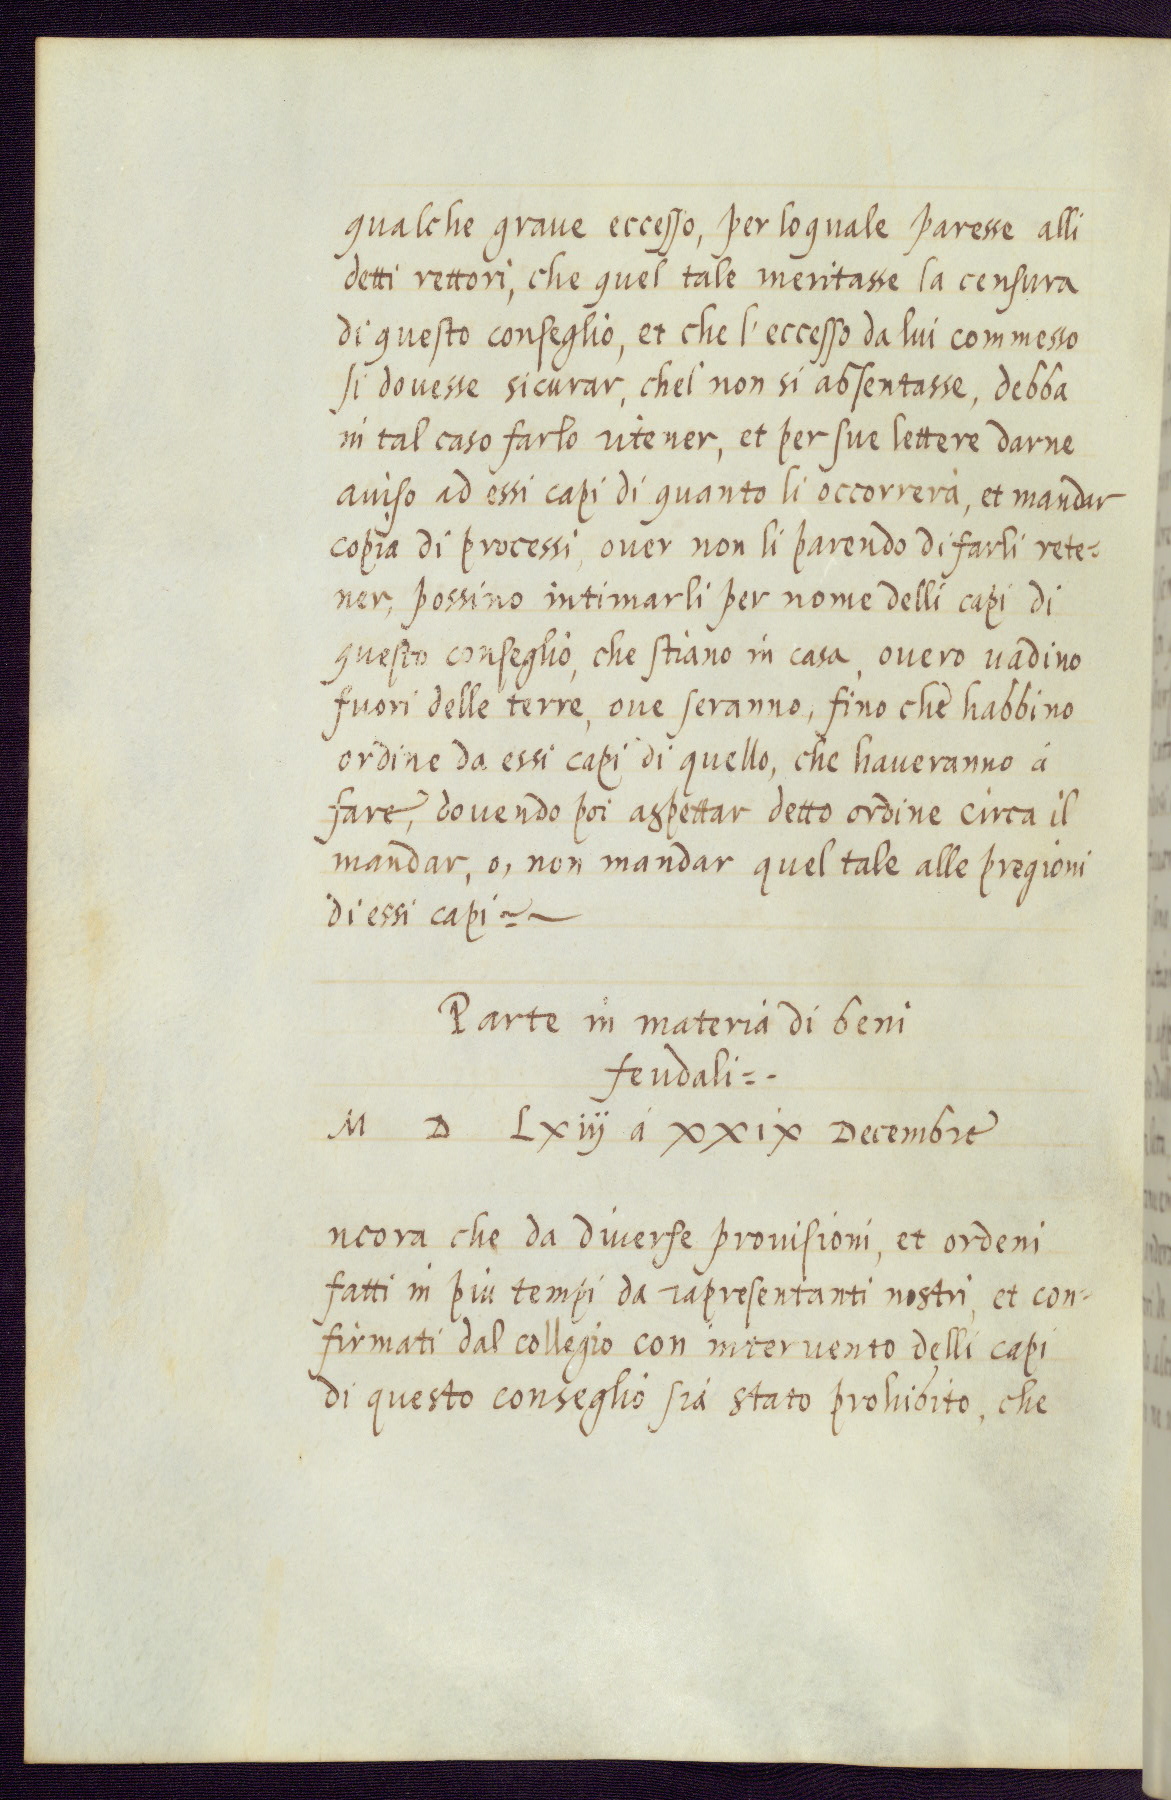 qualche graue eccesso, per loquale paresse alli
detti rettori, che quel tale meritasse la censura
di questo conseglio, et che l'eccesso da lui commesso
si douesse sicurar, chel non si absentasse, debba
in tal caso farlo ritener, et per sue lettere darne
auiso ad essi capi di quanto li occorrerà, et mandar
copia di processi, ouer non li parendo di farli rete=
ner, possino intimarli per nome delli capi di
questo conseglio, che stiano in casa, ouero uadino
fuori delle terre, oue seranno, fino che habbino
ordine da essi capi di quello, che haueranno á
fare, douendo poi aspettar detto ordine circa il
mandar, o, non mandar quel tale alle pregioni
di essi capi =~
Parte in materia di beni
feudali=.
M D Lxiij á xxix Decembre
ncora che da diuerse prouisioni, et ordeni
fatti in piu tempi da rapresentanti nostri, et con=
firmati dal collegio con interuento delli capi
di questo conseglio sia stato prohibito, che